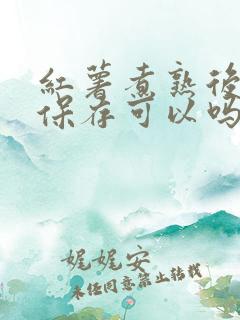 紅薯煮熟後
保存可以吗
娓娓安
未经同意禁止转载